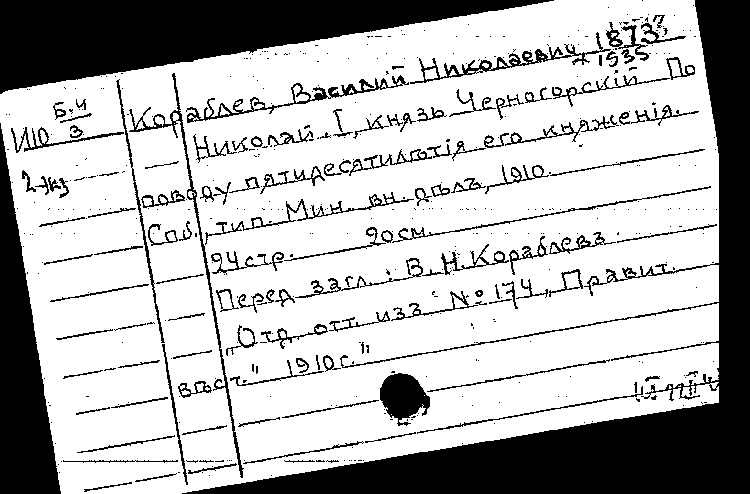 Б.Ч
И10 3
2 экз
Кораблев, Василий Николаевич, 1873-
* 1935
Николай I, князь Черногорскій По
поводу пятидесятилѣтія его княженія.
Спб., тип. Мин. вн. дѣлъ, 1910.
24 стр. 20 см.
Перед загл.: В. Н. Кораблевъ.
„Отд. отт. изъ № 174 „Правит.
вѣст." 1910 г."